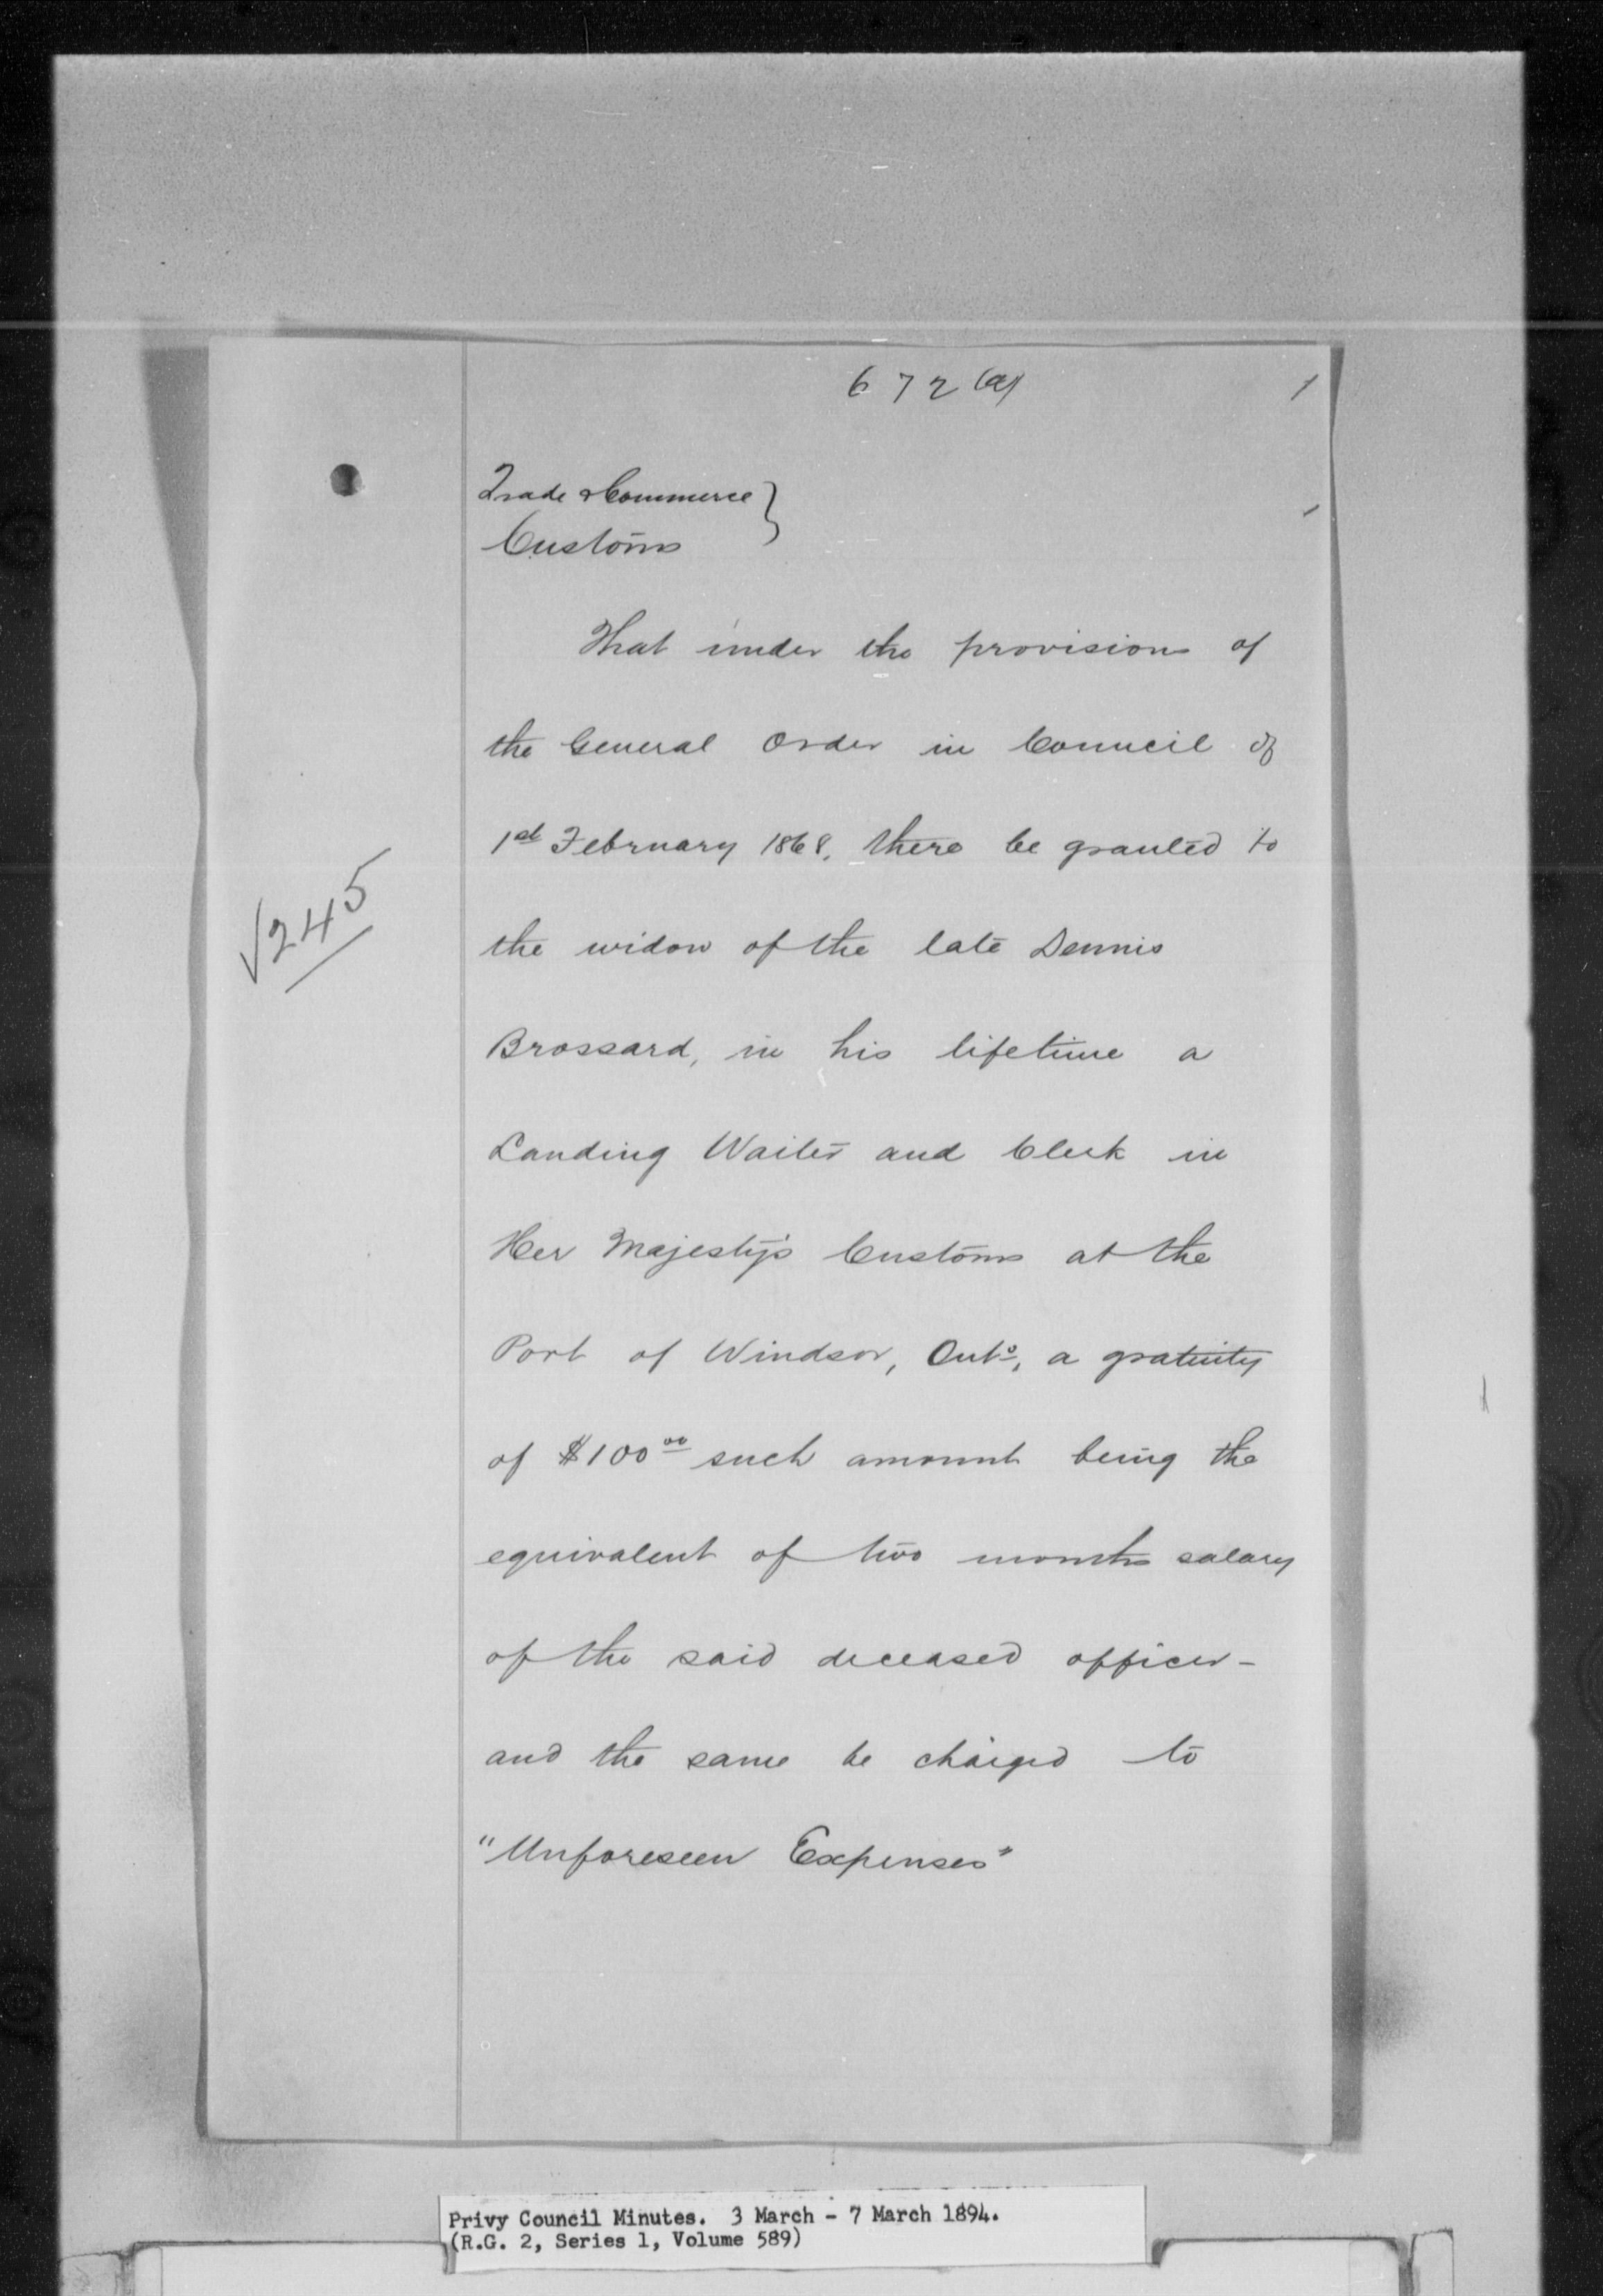 672(a)
Trade & Commerce }
Customs
√245
That under the provisions of
the General Order in Council of
1st February 1868, there be granted to
the widow of the late Dennis
Brossard, in his lifetime a
Landing Waiter and Clerk in
Her Majesty's Customs at the
Port of Windsor, Ont°, a gratuity
of $100.00 such amount being the
equivalent of two months salary
of the said deceased officer -
and the same be charged to
"Unforeseen Expenses"
Privy Council Minutes. 3 March - 7 March 1894.
(R.G. 2, Series 1, Volume 589)